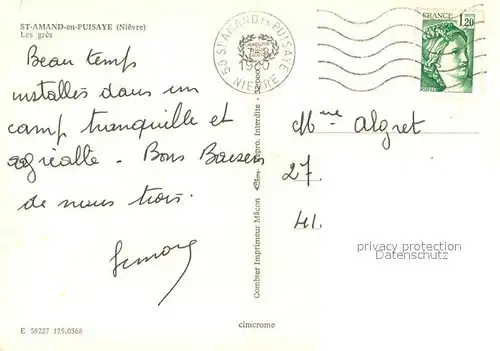 ST-AMAND-en-PUISAYE (Nièvre)
Les grès
Beau temps
installés dans un
camp tranquille et
agréable - Bons Baisers
de nous trois.
58 ST-AMAND EN PUISAYE
NIÈVRE
FRANCE
1,20
Mme Algret
27.
41.
privacy protection
Datenschutz
Combier Imprimeur Mâcon
Repro. Interdite
cimcrome
E 58227 175.0368